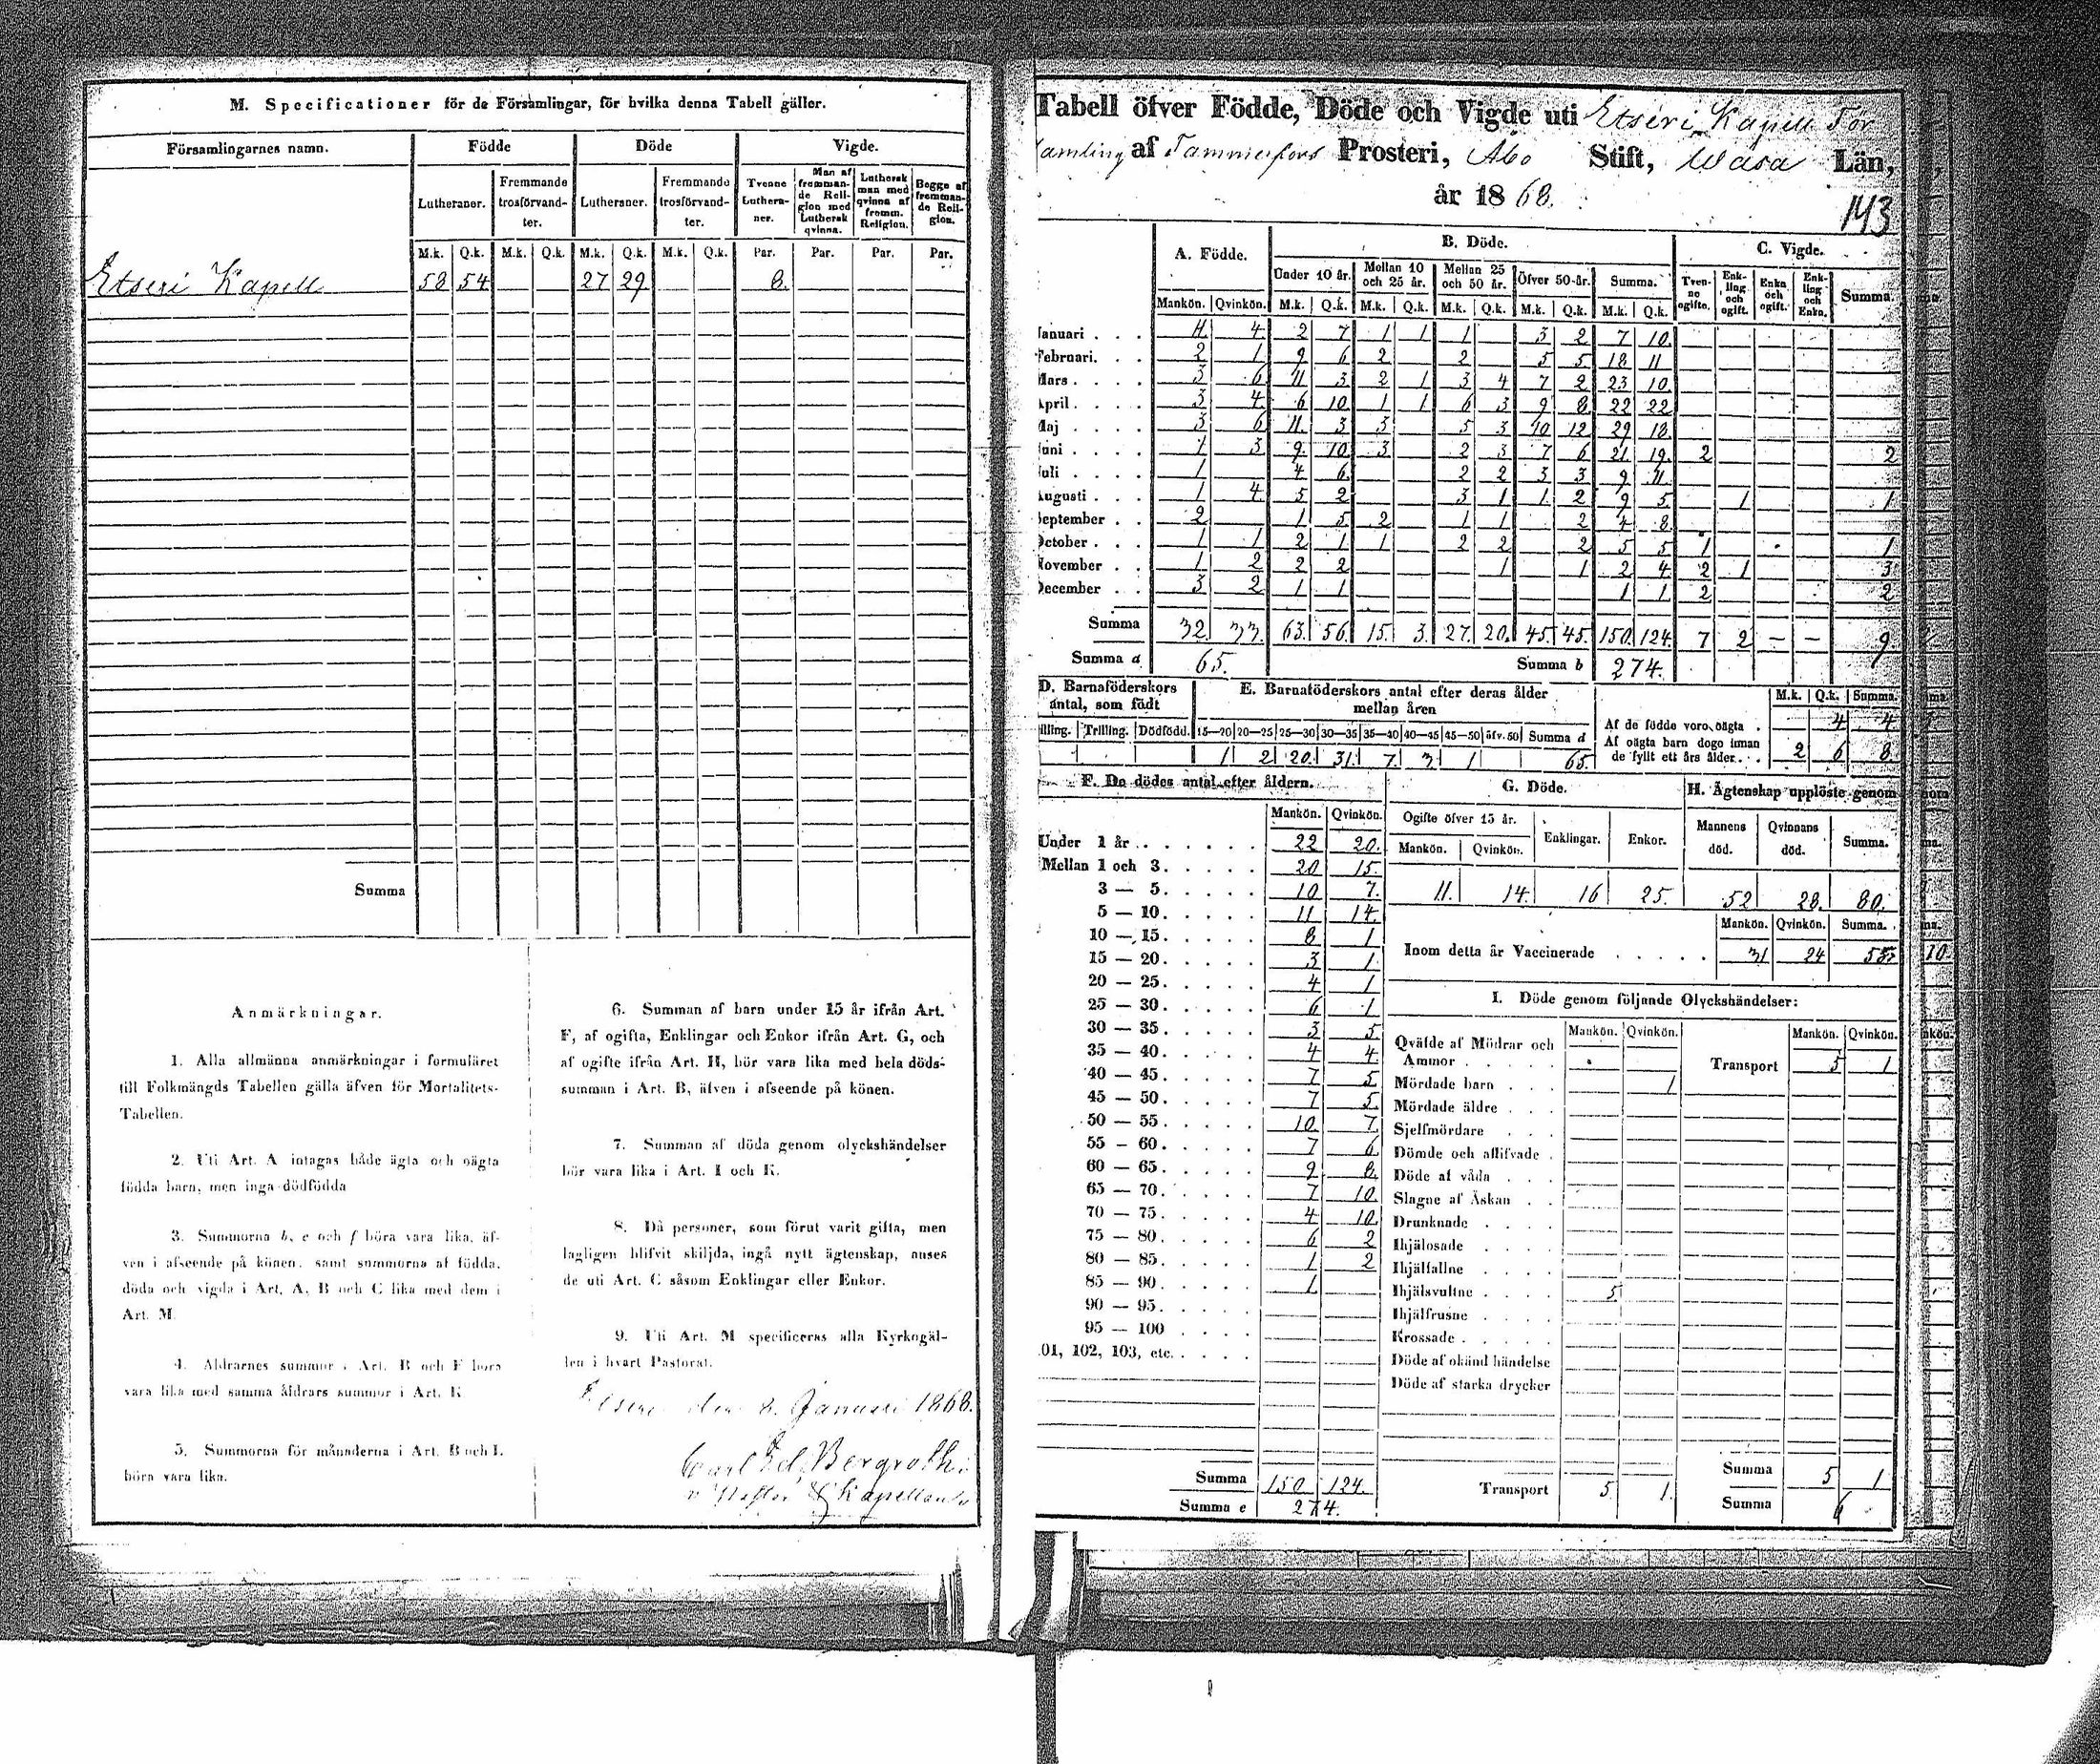 M. Specificationer för de Församlingar, för hvilka denna Tabell gäller.
Församlingarnes namn. Födde Döde Vigde.
Lutheraner. Fremmande trosförvandter. Lutheraner. Fremmande trosförvandter. Tvenne Lutheraner. Man af fremmande Religion med Luthersk qvinna. Luthersk man med qvinna af fremm. Religion. Begge af fremmande Religion.
M.k. Q.k. M.k. Q.k. M.k. Q.k. M.k. Q.k. Par. Par. Par. Par.
Etseri Kapell 58 54 27 29 8.
Summa
Anmärkningar.
1. Alla allmänna anmärkningar i formuläret
till Folkmängds Tabellen gälla äfven för Mortalitets-
Tabellen.
2. Uti Art. A intagas både ägta och oägta
födda barn, men inga dödfödda
3. Summorna b, e och f böra vara lika, äf-
ven i afseende på könen, samt summorna af födda,
döda och vigda i Art. A, B och C lika med dem i
Art. M
4. Åldrarnes summor i Art. B och F böra
vara lika med samma åldrars summor i Art. K
5. Summorna för månaderna i Art. B och L
böra vara lika.
6. Summan af barn under 15 år ifrån Art.
F, af ogifta, Enklingar och Enkor ifrån Art. G, och
af ogifte ifrån Art. H, bör vara lika med hela döds-
summan i Art. B, äfven i afseende på könen.
7. Summan af döda genom olyckshändelser
bör vara lika i Art. I och K.
8. Då personer, som förut varit gifta, men
lagligen blifvit skiljda, ingå nytt ägtenskap, anses
de uti Art. C såsom Enklingar eller Enkor.
9. Uti Art. M specificeras alla Kyrkogäl-
len i hvart Pastorat.
den 8. Januari 1868.
Carl Ed. Bergroth
Kapellan
Tabell öfver Födde, Döde och Vigde uti Etseri Kapell För
samling af Tammerfors Prosteri, Åbo Stift, Wasa Län,
år 1868.
143
A. Födde. B. Döde. C. Vigde.
Under 10 år. Mellan 10 och 25 år. Mellan 25 och 50 år. Öfver 50 år. Summa. Tvenne ogifte. Enkling och ogift. Enka och ogift. Enkling och Enka. Summa.
Mankön. Qvinkön. M.k. Q.k. M.k. Q.k. M.k. Q.k. M.k. Q.k. M.k. Q.k.
Januari 4 2 7 1 1 1 3 2 7 10
Februari. 2 1 9 6 2 2 5 5 18 11
Mars 3 6 11 3 2 1 3 4 7 2 23 10
April 3 4 6 10 1 1 6 3 9 8 22 22
Maj 3 6 11 3 3 5 3 10 12 29 18
Juni 3 9 10 3 2 3 7 6 21 19 2 2
Juli 1 4 6 2 2 3 3 9 11
Augusti 1 4 5 2 3 1 1 2 9 5 1 1
September 2 1 5 2 1 1 2 4 8
October 1 1 2 1 1 2 2 2 5 5 1 1
November 1 2 2 2 1 1 2 4 2 1 3
December 3 2 1 1 1 1 2 2
Summa 32 33. 63. 56. 15. 3. 27. 20. 45. 45. 150. 124. 7 2 – – 9.
Summa a 65. Summa b 274.
D. Barnaföderskors antal, som födt
E. Barnaföderskors antal efter deras ålder mellan åren
M.k. Q.k. Summa.
illing. Trilling. Dödfödd. 15—20 20—25 25—30 30—35 35—40 40—45 45—50 öfv. 50 Summa d
1 2 20. 31. 7 3 1 65.
Af de födde voro oägta 4 4
Af oägta barn dogo innan de fyllt ett års ålder 2 6 8
F. De dödes antal efter åldern.
Mankön. Qvinkön.
Under 1 år 22 20.
Mellan 1 och 3 20 15.
3 — 5 10 7.
5 — 10 11 14.
10 — 15 8 1
15 — 20 3 1
20 — 25 4 1
25 — 30 6 1
30 — 35 3 5
35 — 40 4 4
40 — 45 7 5
45 — 50 7 5
50 — 55 10 7
55 — 60 7 6
60 — 65 9 8
65 — 70 7 10
70 — 75 4 10
75 — 80 6 2
80 — 85 1 2
85 — 90 1
90 — 95
95 — 100
01, 102, 103, etc.
Summa 150 124.
Summa e 274.
G. Döde.
Ogifte öfver 15 år. Enklingar. Enkor.
Mankön. Qvinkön.
11. 14. 16 25.
H. Ägtenskap upplöste genom
Mannens död. Qvinnans död. Summa.
52 28. 80.
Mankön. Qvinkön. Summa.
Inom detta år Vaccinerade 31 24 55
I. Döde genom följande Olyckshändelser:
Mankön. Qvinkön. Mankön. Qvinkön.
Qväfde af Mödrar och Ammor Transport 5 1
Mördade barn 1
Mördade äldre
Sjelfmördare
Dömde och aflifvade
Döde af våda
Slagne af Åskan
Drunknade
Ihjälosade
Ihjälfallne
Ihjälsvultne 5
Ihjälfrusne
Krossade
Döde af okänd händelse
Döde af starka drycker
Transport 5 1. Summa 5 1
Summa 6